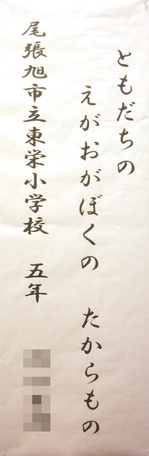 ともだちの
えがおがぼくの　たからもの
尾張旭市立東栄小学校　五年